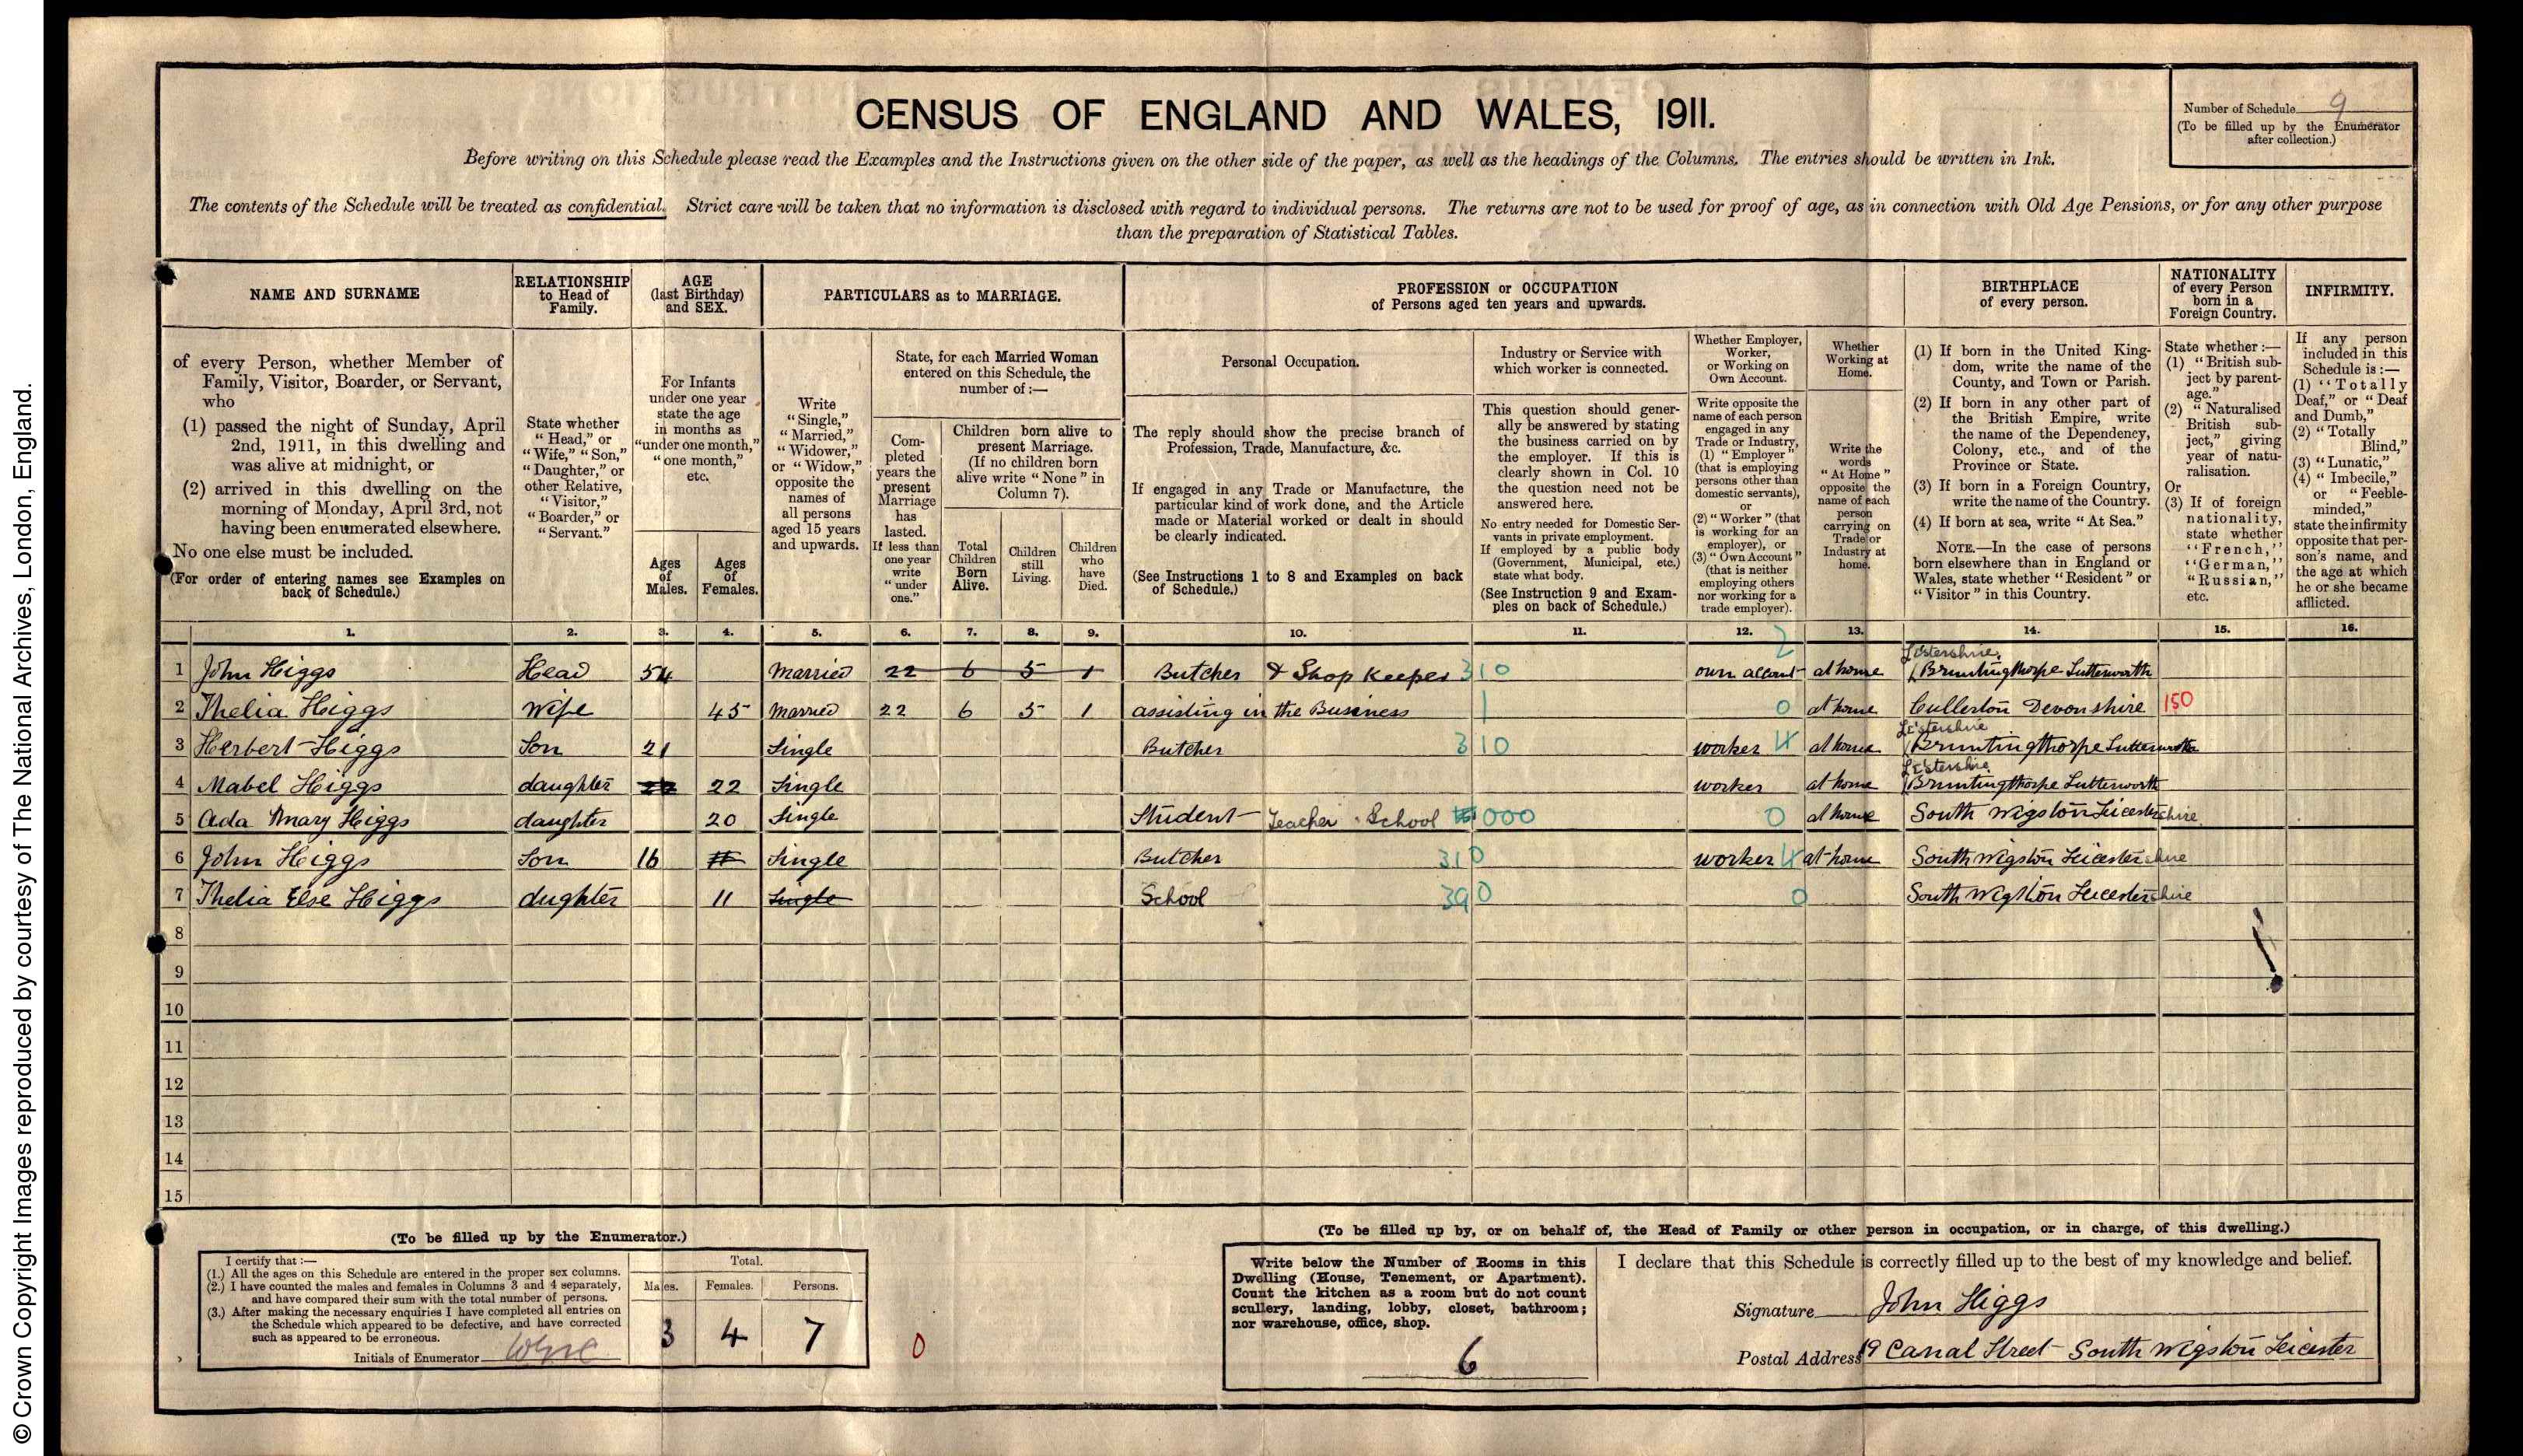 © Crown Copyright Images reproduced by courtesy of The National Archives, London, England.
CENSUS OF ENGLAND AND WALES, 1911.
Number of Schedule 9
(To be filled up by the Enumerator
after collection.)
Before writing on this Schedule please read the Examples and the Instructions given on the other side of the paper, as well as the headings of the Columns. The entries should be written in Ink.
The contents of the Schedule will be treated as confidential. Strict care will be taken that no information is disclosed with regard to individual persons. The returns are not to be used for proof of age, as in connection with Old Age Pensions, or for any other purpose
than the preparation of Statistical Tables.
NAME AND SURNAME
of every Person, whether Member of
Family, Visitor, Boarder, or Servant,
who
(1) passed the night of Sunday, April
2nd, 1911, in this dwelling and
was alive at midnight, or
(2) arrived in this dwelling on the
morning of Monday, April 3rd, not
having been enumerated elsewhere.
No one else must be included.
(For order of entering names see Examples on
back of Schedule.)
RELATIONSHIP
to Head of
Family.
State whether
"Head," or
"Wife," "Son,"
"Daughter," or
other Relative,
"Visitor,"
"Boarder," or
"Servant."
AGE
(last Birthday)
and SEX.
For Infants
under one year
state the age
in months as
"under one month,"
"one month,"
etc.
Ages
of
Males.
Ages
of
Females.
PARTICULARS as to MARRIAGE.
Write
"Single,"
"Married,"
"Widower,"
or "Widow,"
opposite the
names of
all persons
aged 15 years
and upwards.
State, for each Married Woman
entered on this Schedule, the
number of:—
Com-
pleted
years the
present
Marriage
has
lasted.
If less than
one year
write
"under
one."
Children born alive to
present Marriage.
(If no children born
alive write "None" in
Column 7).
Total
Children
Born
Alive.
Children
still
Living.
Children
who
have
Died.
PROFESSION or OCCUPATION
of Persons aged ten years and upwards.
Personal Occupation.
The reply should show the precise branch of
Profession, Trade, Manufacture, &c.
If engaged in any Trade or Manufacture, the
particular kind of work done, and the Article
made or Material worked or dealt in should
be clearly indicated.
(See Instructions 1 to 8 and Examples on back
of Schedule.)
Industry or Service with
which worker is connected.
This question should gener-
ally be answered by stating
the business carried on by
the employer. If this is
clearly shown in Col. 10
the question need not be
answered here.
No entry needed for Domestic Ser-
vants in private employment.
If employed by a public body
(Government, Municipal, etc.)
state what body.
(See Instruction 9 and Exam-
ples on back of Schedule.)
Whether Employer,
Worker,
or Working on
Own Account.
Write opposite the
name of each person
engaged in any
Trade or Industry,
(1) "Employer"
(that is employing
persons other than
domestic servants),
or
(2) "Worker" (that
is working for an
employer), or
(3) "Own Account"
(that is neither
employing others
nor working for a
trade employer).
Whether
Working at
Home.
Write the
words
"At Home"
opposite the
name of each
person
carrying on
Trade or
Industry at
home.
BIRTHPLACE
of every person.
(1) If born in the United King-
dom, write the name of the
County, and Town or Parish.
(2) If born in any other part of
the British Empire, write
the name of the Dependency,
Colony, etc., and of the
Province or State.
(3) If born in a Foreign Country,
write the name of the Country.
(4) If born at sea, write "At Sea."
NOTE.—In the case of persons
born elsewhere than in England or
Wales, state whether "Resident" or
"Visitor" in this Country.
NATIONALITY
of every Person
born in a
Foreign Country.
State whether:—
(1) "British sub-
ject by parent-
age."
(2) "Naturalised
British sub-
ject," giving
year of natu-
ralisation.
Or
(3) If of foreign
nationality,
state whether
"French,"
"German,"
"Russian,"
etc.
INFIRMITY.
If any person
included in this
Schedule is:—
(1) "Totally
Deaf," or "Deaf
and Dumb,"
(2) "Totally
Blind,"
(3) "Lunatic,"
(4) "Imbecile,"
or "Feeble-
minded,"
state the infirmity
opposite that per-
son's name, and
the age at which
he or she became
afflicted.
1. 2. 3. 4. 5. 6. 7. 8. 9. 10. 11. 12. 13. 14. 15. 16.
1 John Higgs Head 54 Married 22 6 5 1 Butcher & Shop Keeper 310 own account 2 at home Leistershire Bruntingthorpe Lutterworth
2 Thelia Higgs Wife 45 Married 22 6 5 1 assisting in the Business 1 0 at home Cullerton Devonshire 150
3 Herbert Higgs Son 21 Single Butcher 310 worker 4 at home Leistershire Bruntingthorpe Lutterworth
4 Mabel Higgs daughter 22 Single worker at home Leistershire Bruntingthorpe Lutterworth
5 Ada Mary Higgs daughter 20 Single Student Teacher School 000 0 at home South Wigston Leicestershire
6 John Higgs Son 16 Single Butcher 310 worker 4 at home South Wigston Leicestershire
7 Thelia Else Higgs dughter 11 Single School 390 0 South Wigston Leicestershire
8
9
10
11
12
13
14
15
(To be filled up by the Enumerator.)
I certify that:—
(1.) All the ages on this Schedule are entered in the proper sex columns.
(2.) I have counted the males and females in Columns 3 and 4 separately,
and have compared their sum with the total number of persons.
(3.) After making the necessary enquiries I have completed all entries on
the Schedule which appeared to be defective, and have corrected
such as appeared to be erroneous.
Initials of Enumerator
Total.
Males. Females. Persons.
3 4 7
0
(To be filled up by, or on behalf of, the Head of Family or other person in occupation, or in charge, of this dwelling.)
Write below the Number of Rooms in this
Dwelling (House, Tenement, or Apartment).
Count the kitchen as a room but do not count
scullery, landing, lobby, closet, bathroom;
nor warehouse, office, shop.
6
I declare that this Schedule is correctly filled up to the best of my knowledge and belief.
Signature John Higgs
Postal Address 19 Canal Street South Wigston Leicester